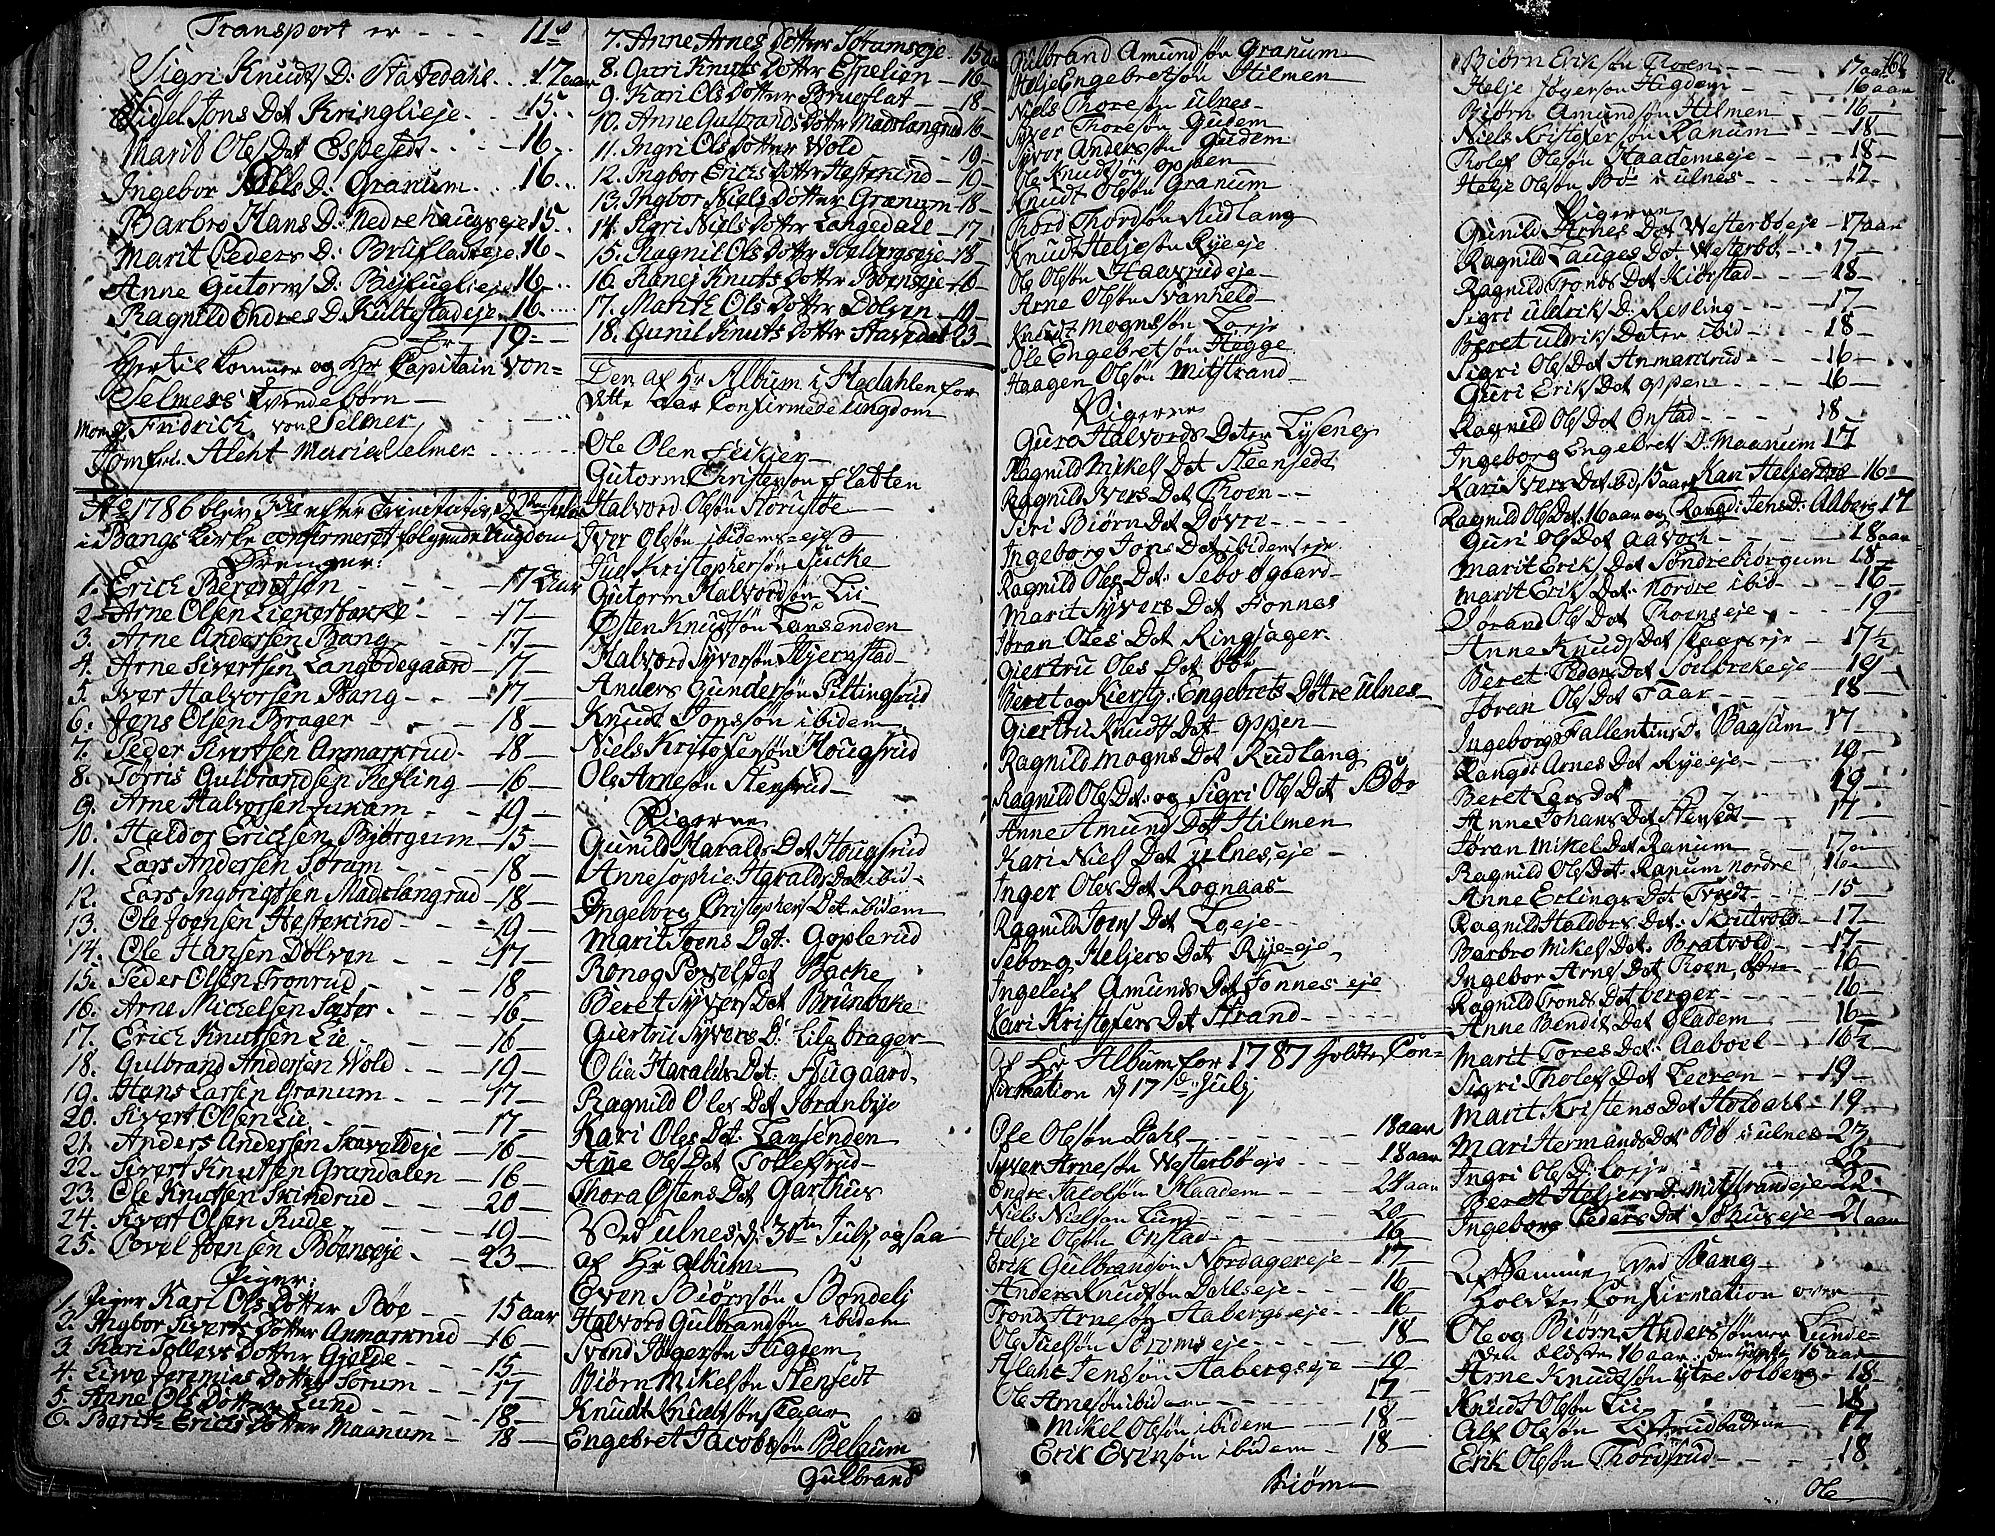 Transport er - - - 11
Sigri Knuds D: Stavedahl - 17 aar
Sigel Jons Dat Kringlieje - - 15 -
Marit Ols Dat Espesedt - - 16 -
Ingebor Niels D: Granum - - 16 -
Barbro Hans D: Nedre haugseje 15 -
Marit Peders D: Bruflateje 16 -
Anne Gutorms D: Bøfuglieje 16 -
Ragnild Endres D: Kultestadeje 16 -
19 -
Hertil kommer og Hr Capitain von=
Selmers tvende børn -
Mons: Fridrich von Selmer
Jomfru Aleht Maria Selmer
Ao 1786 blev 3die efter Trinitatis
i Bangs kirke confirmeret følgende Ungdom
Drenger:
1. Erich Berentsen - - 17 Aar
2. Arne Olsen Liekerbakke - 17 -
3. Arne Andersen Bang - - 17 -
4. Arne Sivertsen Langødegaard - 17 -
5. Iver Halvorsen Bang - - 17
6. Jens Olsen Brager - - 18 -
7. Peder Sivertsen Anmarkrud - 18 -
8. Torris Gulbrandsen Resling - 16 -
9. Arne Halvorsen Juvkam - 19 -
10. Haldor Ericksen Bjørgum - 15 -
11. Lars Andersen Sørum - - 18 -
12. Lars Ingbrigtsen Madslangrud - 18 -
13. Ole Joensen Hestekind - - 19 -
14. Ole Hansen Dølven - - 17 -
15. Peder Olsen Tronrud - - 18 -
16. Arne Michelsen Sæter - - 16 -
17. Erich Knutsen Lie - - 16 -
18. Gulbrand Andersen Wold - 19 -
19. Hans Larsen Granum - - 17 -
20. Sivert Olsen Lie - - 17 -
21. Anders Andersen Skaveldeje - 16 -
22. Sivert Knutsen Grandalen - 16 -
23. Ole Knutsen Skinkrud - 20 -
24. Sivert Olsen Rude - - 19 -
25. Povel Joensen Bøenseje - 23 -
Piger:
1. Piger Kari Ols Dotter Bøe - - 15 aar
2. Ingbor Siverts Dotter Anmarkrud - 16 -
3. Kari Tollevs Dotter Gjelde - 15 -
4. Liva Jeremias Dotter Sorum - 17 -
5. Anne Ols Dotter Lund - - 18 -
6. Barith Erichs Dotter Maanum - 18 -
7. Anne Arnes Dotter Sørumseje 15 aar
8. Guri Knuts Dotter Espelien - 16 -
9. Kari Ols Dotter Brueflat - 18 -
10. Anne Gulbrands Dotter Madslangrud 16 -
11. Ingri Ols Dotter Wold - 19 -
12. Ingbor Erichs Dotter Hestekind - 19 -
13. Ingbor Niels Dotter Granum - 18 -
14. Sigri Niels Dotter Langedale - 17 -
15. Ragnil Ols Dotter Solbergseje 18 -
16. Ranej Knuts Dotter Bøenseje - 16 -
17. Marith Ols Dotter Dølven - 19 -
18. Gunil Knuts Dotter Stavedal 23 -
Den af Hr Album i Hedahlen for
dette Aar Confirmede Ungdom
Ole Olsen Leikjen -
Gutorm Christenson Flatten
Halvord Olsøn Storustøe -
Iver Olsøn ibidems-eje
Juel Kristophersøn Sucke
Gutorm Halvordsøn Lie
Østen Knudsøn Lansenden
Halvord Syversøn Skjernstad -
Anders Gundersøn Piltingsrud
Knudt Jonssøn ibidem
Niels Kristofersøn Hougsrud
Ole Arnesøn Stensrud -
Pigerne
Gunild Haralds Dat Hougsrud
Anne sophie Haralds Dat ibid -
Ingeborg Cristophers Dat ibidem
Marit Joens Dat: Goplerud
Ronog Povels Dat Backe
Beret Syvers Dat Brunbake
Giertru Syvers D: Lile brager -
Olia Haralds Dat: Augaard.
Ragnild Oles Dat Soranbye
Kari Oles Dat: Lansenden
Ane Ols Dat Tollefsrud -
Thora Østens Dat Garthus
Ved ulnes d: 30te Julj ogsaa
af Hr album
Even Biørnsøn Bondelj
Halvord Gulbrandsøn ibidem
Svend Jøgersøn Higdem
Biørn Mikelsøn Stensedt
Knudt Knudtsøn Skaar
Engebret Jacobssøn Belgum
Gulbrand
Gulbrand Amundsøn Granum
Helje Engebretsøn Hilmen
Niels Thoresøn ulnes -
Syver Thoresøn Gudem
Syver Anderssøn Gudem
Ole Knudsøn Oppen -
Knudt Olsøn Granum
Thord Thordsøn Rudlang
Knudt Heljesøn Ryeeje
Ole Olsøn Haavrudeje -
Arne Olsøn Svanheld -
Knudt Mognssøn Loeje
Ole Engebretsøn Hegge
Haagen Olsøn Mitstrand -
Pigerne
Guro Halvords Dater Lyseng
Ragnild Mikels Dat Steensedt
Ragnild Ivers Dat Thoen - -
Siri Biørn Dat Døvre - - -
Ingeborg Jons Dat ibidemseje
Ragnild Oles Dat: Sebo Øgaard -
Marit Syvers Dat Fonnes
Jøran Oles Dat Ringsager
Giertru Oles Dat bøe
Beret og Kiersty: Engebrets Døtre ulnes -
Giertru Knudt Dat Oppen -
Ragnild Mogns Dat Rudlang
Ragnild Ols Dat: og Sigri Ols Dat Bøe
Anne Amund Dat Hilmen
Kari Niels Dat ulneseje -
Inger Oles Dat Rognaas -
Ragnild Joens Dat Loeje -
Seborg Heljers Dat Ryeeje
Ingeleif Amunds Dat Fonnes eje
Kari Kristofers Dat Strand - - -
Af Hr Album for 1787 holdte Con=
firmation d 17de Julj
Ole Olsøn Dahl - - - 18 aar
Syver Arnesøn Westerbøeje - - 18 aar
Endre Jacobsøn Haadem - - 24 aar
Niels Nielsøn Lund - - 20 -
Helje Olsøn Onstad - - 16 -
Erik Gulbrandsøn Nordagereje - 17 -
Anders Knudsøn Dahlseje - - 16 -
Trond Arnesøn Aabergseje - - 16 -
Ole Juelsøn Strømseje - - 18 -
Alaht Jenssøn Aabergseje - 19 -
Ole Arnesøn ibid - - 17 -
Mikel Olsøn ibidem - - 18 -
Erik Evensøn ibidem - 18 -
Biørn -
Biørn Eriksøn Thoen - - 17 aar
Helje Jøgersøn Higdem - - 16 aar
Biørn Amundsøn Hilmen - 16 -
Niels Kristofersøn Ranum - 18 -
Tholef Olsøn Haademseje - - 18 -
Helje Olsøn Bøe i ulnes - - 17 -
Pigerne
Gunild Arnes Dat Westerbøeje - 17 aar
Ragnild Lauges Dat: Westerbø - 17 -
Ragnild Tronds Dat Kiørstad - 18 -
Sigri uldriks D: Resling - 17 -
Beret uldriks Dater ibid - - 18 -
Sigri Ols Dat Anmarkrud - - 16 -
Guri Eriks Dat Oppen - - 16 -
Ragnild Ols Dat Onstad - - 18 -
Ingeborg Engebret D: Maanum 17
Kari Ivers Dat ibid, 15 aar Kari Heljesdat 16 -
Ragnild Ols Dat: 16 aar og Rangdi Jens D: Aaberg 17
Guri Ols Dat Aavoch - - 18 aar
Marit Eriks Dat Søndre biørgum 18 -
Marit Eriks Dat: Nordre ibid - 16 -
Sørand Ols Dat Thoenseje - - 19 -
Anne Knuds Dat Skaarseje - 17½ -
Beret Peders Dat Solbrekeje - 19 -
Jøran Ols Dat Faar - - 18 -
Ingeborg Fallentins D: Bagsum 17 -
Rangdi Arnes Dat Ryeeje - - 19 -
Beret Lars Dat - - - 19 -
Anne Johans Dat Stensedt - 17 -
Jøran Mikel Dat Ranum - - 17 -
Ragnild Ols Dat: Ranum Nordre 16 -
Anne Erlings Dat Tvedt - - 15 -
Ragnild Haldors Dat: Skrutvold - 17 -
Barbro Mikels Dat: Bratvold - 17 -
Ingebor Arnes Dat Thoen, østre - 16
Ragnild Tronds Dat berger - - 16 -
Anne Bendix Dat Gladem - - 16 -
Marit Tores Dat: Aaboel - - 16½ -
Sigri Tholefs Dat Leeren - - 19 -
Marit Kristens Dat Holdahl - 19 -
Mari Hermands Dat Bø i ulnes - 23 -
Ingri Ols D: Loeje - - 22 -
Beret Heljers D: Mitstrandeje 22 -
Ingeborg Peders Dat Sohuseje - 21 aar
Af Samme, ved Bang -
holdte Confirmation over -
Ole og Biørn Anders sønner Lunde -
den ældste 16 aar, den yngste 15 aar
Arne Knudsøn ytre Solberg - 18 -
Knudt Olsøn Lie - - 18
Alf Olsøn Liferudbakene 17
Erik Olsøn Thordsrud - - 18
Ole